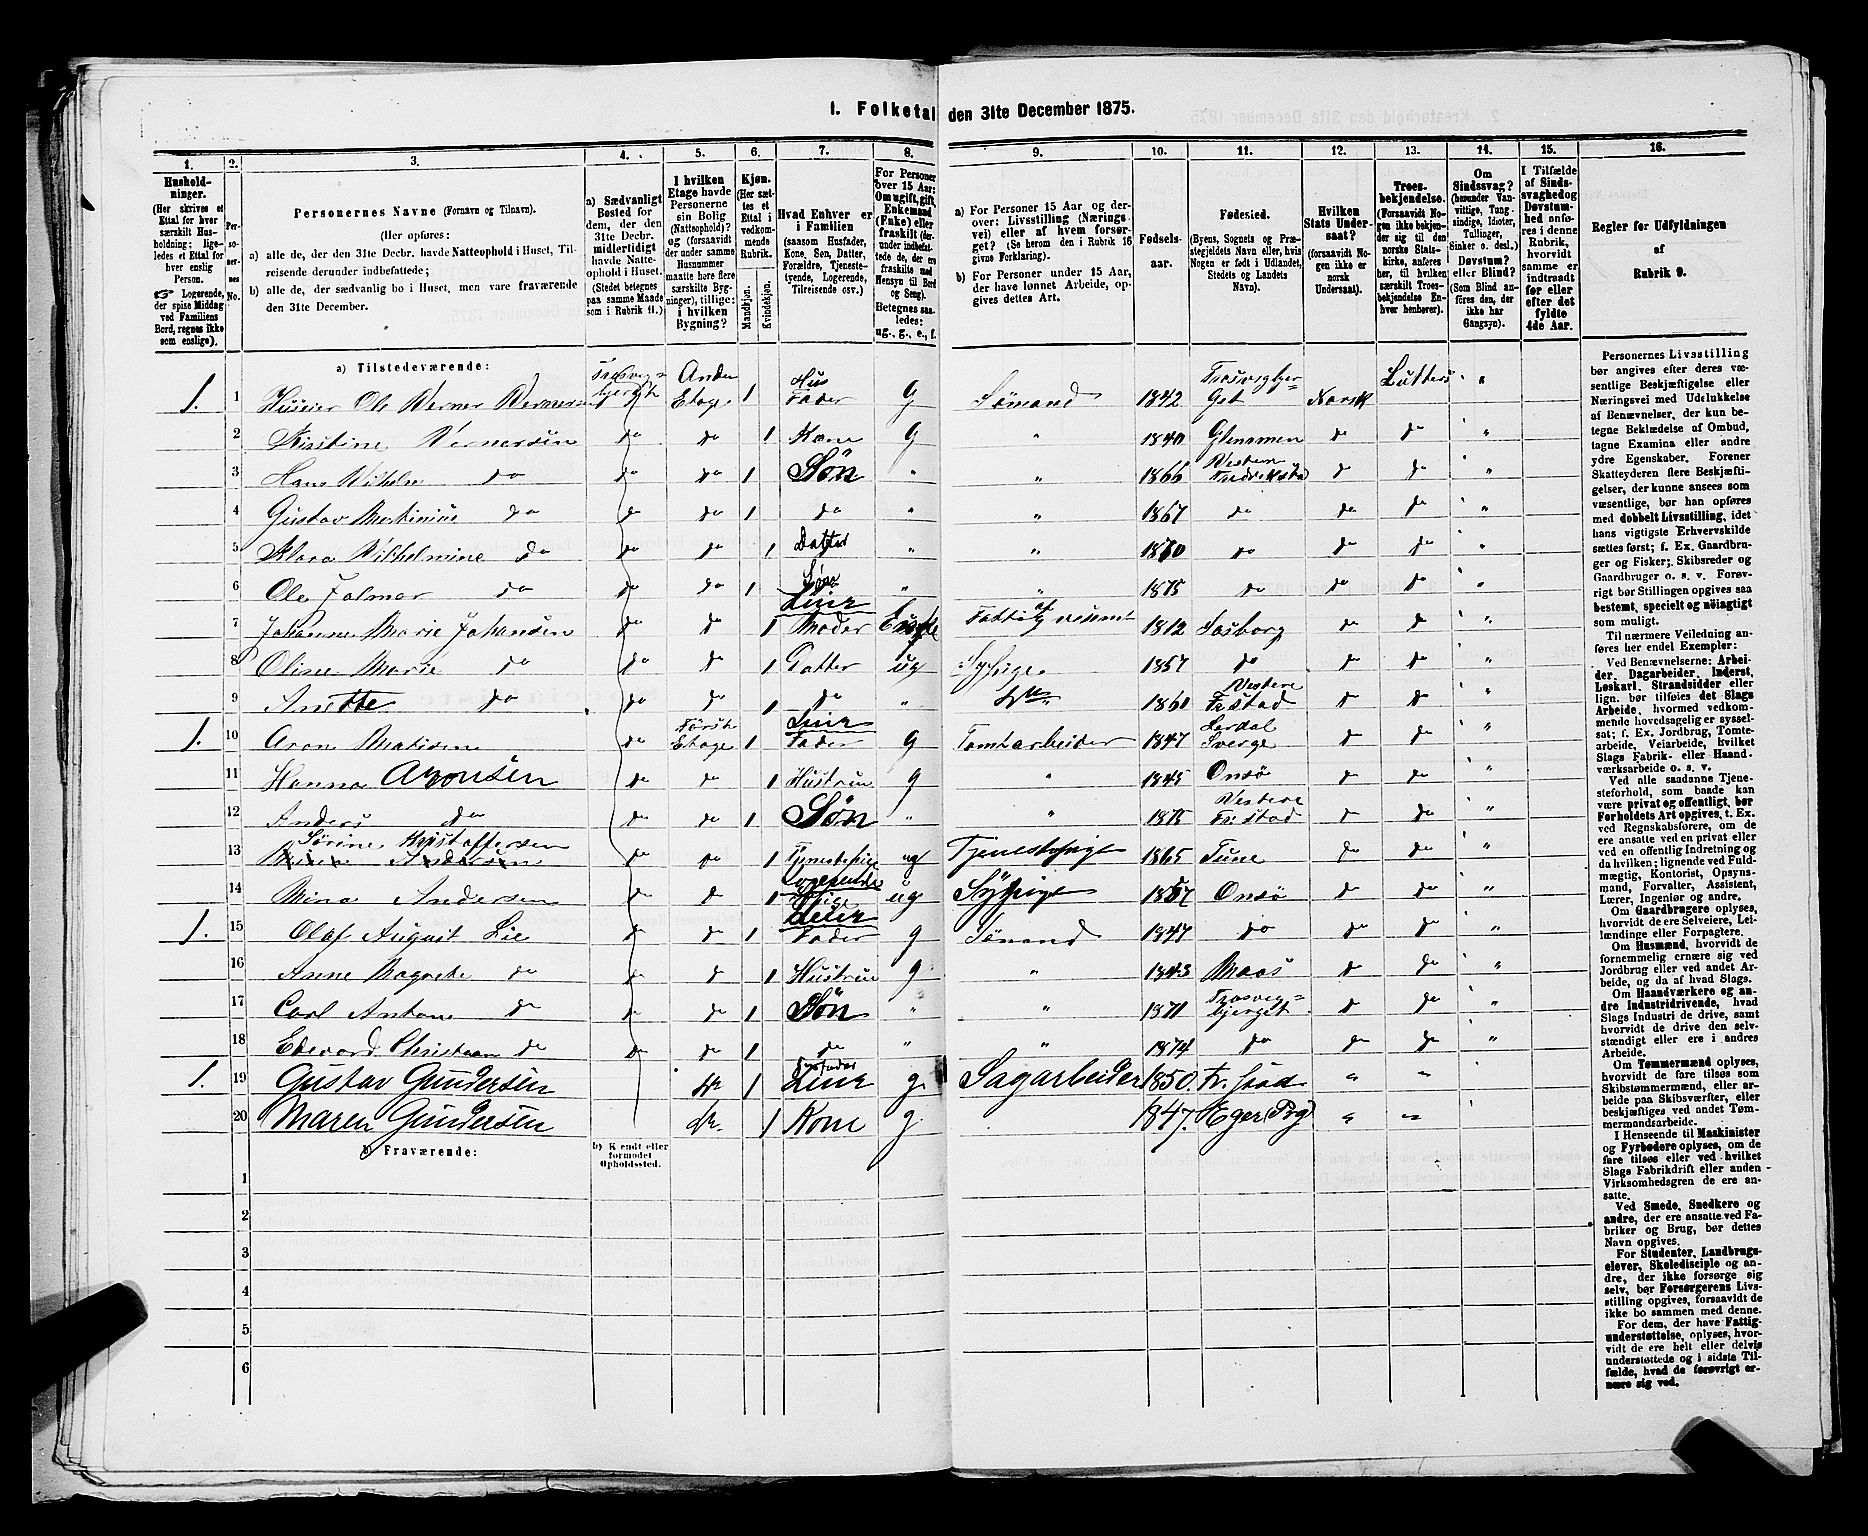 1. Folketal den 31te December 1875.
1. 2. 3. 4. 5. 6. 7. 8. 9. 10. 11. 12. 13. 14. 15. 16.
Husholdninger.
(Her skrives et Ettal for hver særskilt Husholdning; ligeledes et Ettal for hver enslig Person.
☞ Logerende, der spise Middag ved Familiens Bord, regnes ikke som enslige).
Personernes No.
Personernes Navne (Fornavn og Tilnavn).
(Her opføres:
a) alle de, der den 31te Decbr. havde Natteophold i Huset, Tilreisende derunder indbefattede;
b) alle de, der sædvanlig bo i Huset, men vare fraværende den 31te December.
a) Sædvanligt Bosted for dem, der den 31te Decbr. midlertidigt havde Natteophold i Huset. (Stedet betegnes paa samme Maade som i Rubrik 11.)
I hvilken Etage havde Personerne sin Bolig (Natteophold)? og (forsaavidt der under samme Husnummer maatte høre flere særskilte Bygninger), tillige: i hvilken Bygning?
Kjøn.
(Her sættes et Ettal i vedkommende Rubrik.
Mandkjøn. Kvindekjøn.
Hvad Enhver er i Familien
(saasom Husfader, Kone, Søn, Datter, Forældre, Tjenestetyende, Logerende, Tilreisende osv.)
For Personer over 15 Aar: Om ugift, gift, Enkemand (Enke) eller fraskilt (derunder indbefattede de, der ere fraskilte med Hensyn til Bord og Seng). Betegnes saaledes: ug., g., e., f.
a) For Personer 15 Aar og derover: Livsstilling (Næringsvei) eller af hvem forsørget? (Se herom den i Rubrik 16 givne Forklaring).
b) For Personer under 15 Aar, der have lønnet Arbeide, opgives dettes Art.
Fødselsaar.
Fødested.
(Byens, Sognets og Præstegjeldets Navn eller, hvis Nogen er født i Udlandet, Stedets og Landets Navn).
Hvilken Stats Undersaat?
(forsaavidt Nogen ikke er norsk Undersaat).
Troesbekjendelse.
(Forsaavidt Nogen ikke bekjender sig til den norske Statskirke, anføres her, til hvilken særskilt Troesbekjendelse Enhver henhører).
Om Sindssvag? (herunder Vanvittige, Tungsindige, Idioter, Tullinger, Sinker o. desl.) Døvstum? eller Blind? (Som Blind anføres den, der ikke har Gangsyn).
I Tilfælde af Sindssvaghed og Døvstumhed anføres i denne Rubrik, hvorvidt samme er indtraadt før eller efter det fyldte 4de Aar.
Regler for Udfyldningen af Rubrik 9.
a) Tilstedeværende:
1. 1 Huseier Ole Werner Wernersen Anden Etage 1 Hus Fader g Sømand 1842 Trosvigberget Norsk Luthersk "
2 Kristine Wernersen do do 1 Kone g " 1840 Glemmen do do "
3 Hans Vilhelm do do do 1 Søn " " 1866 Vestern Fredrikstad do do "
4 Gustav Martinius do do do 1 do " " 1867 do do do "
5 Klara Vilhelmine do do do 1 Datter " " 1870 do do do "
6 Ole Jalmar do do do 1 Søn " " 1875 do do do "
7 Johanne Marie Johansen do do 1 Leier Moder Enke 1812 Sasborg do do "
8 Oline Marie do do do 1 Datter ug Sypige 1857 do do do "
9 Anette do do do 1 do " do 1860 Vestere Frstad do do "
1. 10 Aron Matisen do Første Etage 1 Leier Fader g Tomtarbeider 1847 Lerdal Sverge do do "
11 Hanna Aronsen do do 1 Hustrue g " 1845 Onsø do do "
12 Anders do do do 1 Søn " " 1875 Vestere Frestad do do "
13 Sørine Kristoffersen do do 1 Tjenestepige ug Tjenestepige 1865 Tune do do "
14 Mina Andersen do do 1 Logerende Pige ug Sypige 1857 Onsø do do "
1. 15 Olaf August Lie do do 1 Leier Fader g Sømand 1847 do do do "
16 Anne Magrete do do d 1 Hustrue g " 1843 Moss do do "
17 Carl Anton do do do 1 Søn " " 1871 Trosvigbjerget do do "
18 Edevard Christian do do do 1 do " " 1874 do do do "
1. 19 Gustav Gundersen do 1 Husfader Leier g. Sagarbeider 1850. Fr. stad " "
20 Maren Gundersen do. 1 Kone g. 1847. Eger (Prg) " "
b) Fraværende:
b) Kjendt eller formodet Opholdssted.
1
2
3
4
5
6
Personernes Livsstilling bør angives efter deres væsentlige Beskjæftigelse eller Næringsvei med Udelukkelse af Benævnelser, der kun betegne Beklædelse af Ombud, tagne Examina eller andre ydre Egenskaber. Forener Skatteyderen flere Beskjæftigelser, der kunne ansees som væsentlige, bør han opføres med dobbelt Livsstilling, idet hans vigtigste Erhvervskilde sættes først; f. Ex. Gaardbruger og Fisker; Skibsreder og Gaardbruger o. s. v. Forøvrigt bør Stillingen opgives saa bestemt, specielt og nøiagtigt som muligt.
Til nærmere Veiledning anføres her endel Exempler:
Ved Benævnelserne: Arbeider, Dagarbeider, Inderst, Løskarl, Strandsidder eller lign. bør tilføies det Slags Arbeide, hvormed vedkommende hovedsagelig er sysselsat; f. Ex. Jordbrug, Tomtearbeide, Veiarbeide, hvilket Slags Fabrik- eller Haandværksarbeide o. s. v.
Ved alle saadanne Tjenesteforhold, som baade kan være privat og offentligt, bør Forholdets Art opgives, t. Ex. ved Regnskabsførere, om de ere ansatte ved en privat eller ved en offentlig Indretning og da hvilken; lignende ved Fuldmægtig, Kontorist, Opsynsmand, Forvalter, Assistent, Lærer, Ingeniør og andre.
Om Gaardbrugere oplyses, hvorvidt de ere Selveiere, Leilændinge eller Forpagtere.
Om Husmænd, hvorvidt de fornemmelig ernære sig ved Jordbrug eller ved andet Arbeide, og da af hvad Slags.
Om Haandværkere og andre Industridrivende, hvad Slags Industri de drive, samt hvorvidt de drive den selvstændigt eller ere i andres Arbeide.
Om Tømmermænd oplyses, hvorvidt de fare tilsøs som Skibstømmermænd, eller arbeide paa Skibsværfter, eller beskjæftiges ved andet Tømmermandsarbeide.
I Henseende til Maskinister og Fyrbødere oplyses, om de fare tilsøs eller ved hvilket Slags Fabrikdrift eller anden Virksomhedsgren de ere ansatte.
Ved Smede, Snedkere og andre, der ere ansatte ved Fabriker og Brug, bør dettes Navn opgives.
For Studenter, Landbrugselever, Skoledisciple og andre, der ikke forsørge sig selv, bør Forsørgerens Livsstilling opgives, forsaavidt de ikke bo sammen med denne.
For dem, der have Fattigunderstøttelse, oplyses, hvorvidt de ere helt eller delvis understøttede og i sidste Tilfælde, hvad de forøvrigt ernære sig ved.